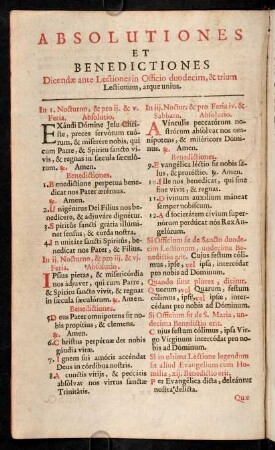 ABSOLUTIONES
ET
BENEDICTIONES
Dicendæ ante Lectiones in Officio duodecim, & trium
Lectionum, atque unius.
In 1. Nocturno, & pro ij. & v.
Feria. Absolutio.
EXáudi Dómine Jesu Chri-
ste, preces servórum tuó-
rum, & miserére nobis, qui
cum Patre, & Spíritu sancto vi-
vis, & regnas in sæcula sæculó-
rum. ℟. Amen.
Benedictiones.
1. Benedictióne perpétua bene-
dícat nos Pater ætérnus.
℟. Amen.
2. Unigénitus Dei Fílius nos bene-
dícere, & adjuváre dignétur.
3. Spíritus sancti grátia illúmi-
net sensus, & corda nostra.
4. In unitáte sancti Spíritus, be-
nedícat nos Pater, & Fílius.
In ij. Nocturno, & pro iij. & vj.
Feria. Absolutio.
IPsíus píetas, & misericórdia
nos ádjuvet, qui cum Patre,
& Spíritu sancto vivit, & regnat
in sæcula sæculórum. ℟. Amen.
Benedictiones.
5. Deus Pater omnípotens sit no-
bis propítius, & clemens.
℟. Amen.
6. Christus perpétuæ det nobis
gáudia vitæ.
7. Ignem sui amóris accéndat
Deus in córdibus nostris.
8. A cunctis vítiis, & peccátis
absólvat nos virtus sanctæ
Trinitátis.
In iij. Noctur. & pro Feria iv. &
Sabbato. Absolutio.
A Vínculis peccatórum no-
strórum absólvat nos om-
nípotens, & miséricors Dómi-
nus. ℟. Amen.
Benedictiones.
9. Evangélica léctio sit nobis sa-
lus, & protéctio. ℟. Amen.
10. Ille nos benedícat, qui sine
fine vivit, & regnat.
11. Divínum auxílium máneat
semper nobíscum.
12. Ad societátem cívium super-
nórum perdúcat nos Rex An-
gelórum.
Si Officium sit de Sancto duode-
cim Lectionum, undecima Be-
nedictio erit. Cujus festum có-
limus, ipse, vel ipsa, intercédat
pro nobis ad Dóminum.
Quando sunt plures, dicitur.
Quorum, vel Quarum, festum
cólimus, ipsi, vel ipsæ, inter-
cédant pro nobis ad Dóminum.
Si Officium sit de S. Maria, un-
decima Benedictio erit.
Cujus festum cólimus, ipsa Vir-
go Vírginum intercédat pro no-
bis ad Dóminum.
Si in ultima Lectione legendum
sit aliud Evangelium cum Ho-
milia, xij. Benedictio erit.
Per Evangélica dicta, deleántur
nostra delícta.
Quæ